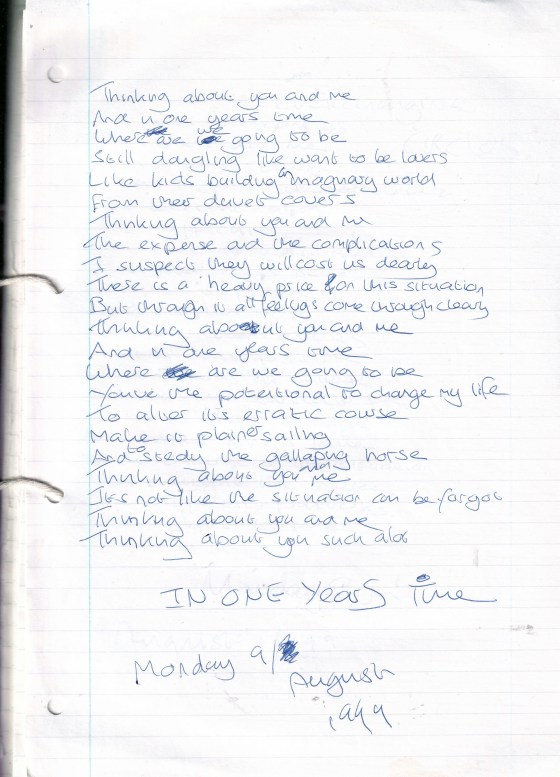 Thinking about you and me
And in one years time
Where are we going to be
Still dangling like want to be lovers
Like kids building an imaginary world
From their duvet covers
Thinking about you and me
The expense and the complications
I suspect they will cost us dearly
There is a heavy price for this situation
But through it all feelings come through clearly
Thinking about you and me
And in one years time
Where are we going to be
You've the potentional to change my life
To alter its erratic course
Make it plainer sailing
And to stedy the gallaping horse
Thinking about you and me
It's not like the situation can be forgot
Thinking about you and me
Thinking about you such alot
IN ONE YearS Time
Monday 9/
August
1999